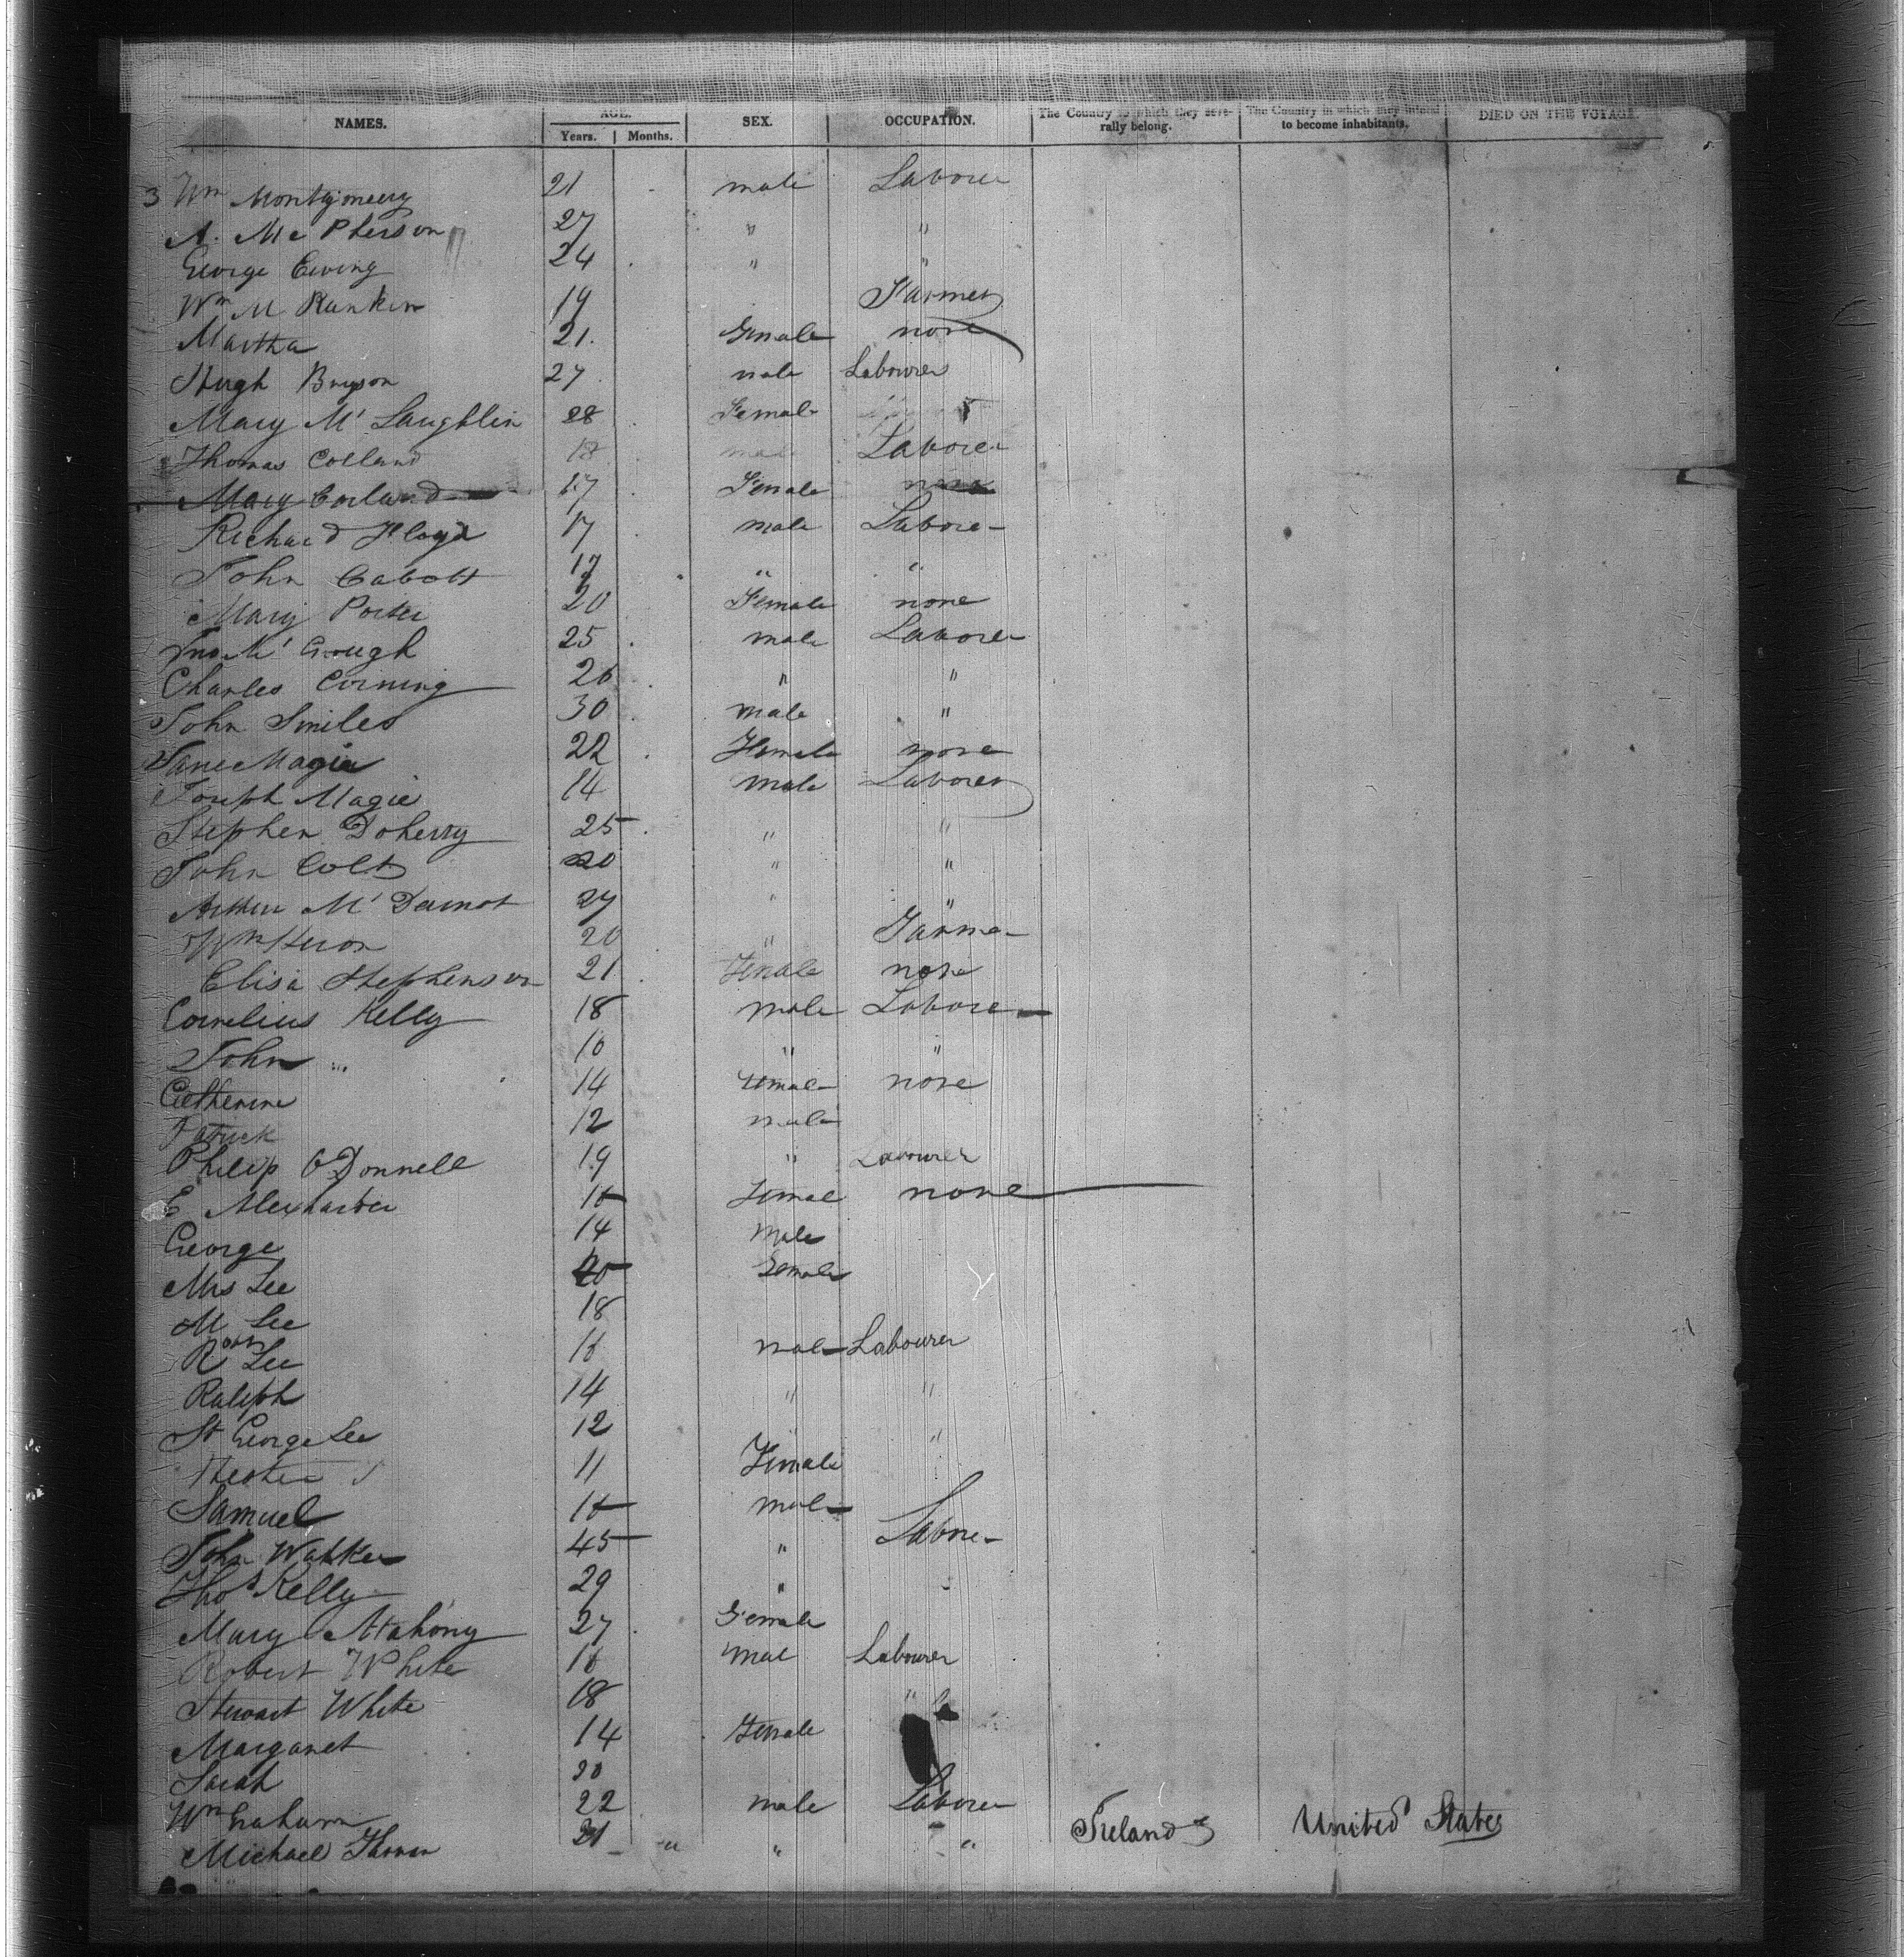 NAMES. AGE. SEX. OCCUPATION. The Country to which they severally belong. The Country in which they intend to become inhabitants. DIED ON THE VOYAGE.
Years. Months.
3 Wm Montgomery 21 male Laborer
A. McPherson 27 " "
George Ewing 24 " "
Wm M Rankin 19 Farmer
Martha 21 Female none
Hugh Bryson 27 male Labourer
Mary M' Laughlin 28 Female
Thomas Colland 18 male Laborer
Mary Corland 17 Female none
Richard Floyd 17 male Laborer
John Cabott 17 " "
Mary Porter 20 Female none
Jno M' Gough 25 male Laborer
Charles Corning 26 " "
John Smiles 30 male "
Jane Magie 22 Female none
Joseph Magie 14 male Laborer
Stephen Doherty 25 " "
John Colt 20 " "
Arthur M' Dermot 27 " "
Wm Heron 20 " Farmer
Elisa Stephenson 21 Female none
Cornelius Kelly 18 male Laborer
John " 16 " "
Catherine 14 Female none
Patrick 12 male
Philip O'Donnell 19 " Labourer
E Alexander 16 Female none
George 14 Male
Mrs Lee Female
M Lee 18
Lee 16 male Labourer
Ralph 14 " "
St George Lee 12 "
Hester 11 Female
Samuel 16 male
John Walker 45 " Laborer
Thos Kelly 29 "
Mary Mahony 27 Female
Robert White 16 Mal Labourer
Stewart White 18 "
Margaret 14 Female
Sarah 20
Wm Graham 22 male Laborer
Michael 21 " " " Ireland United States